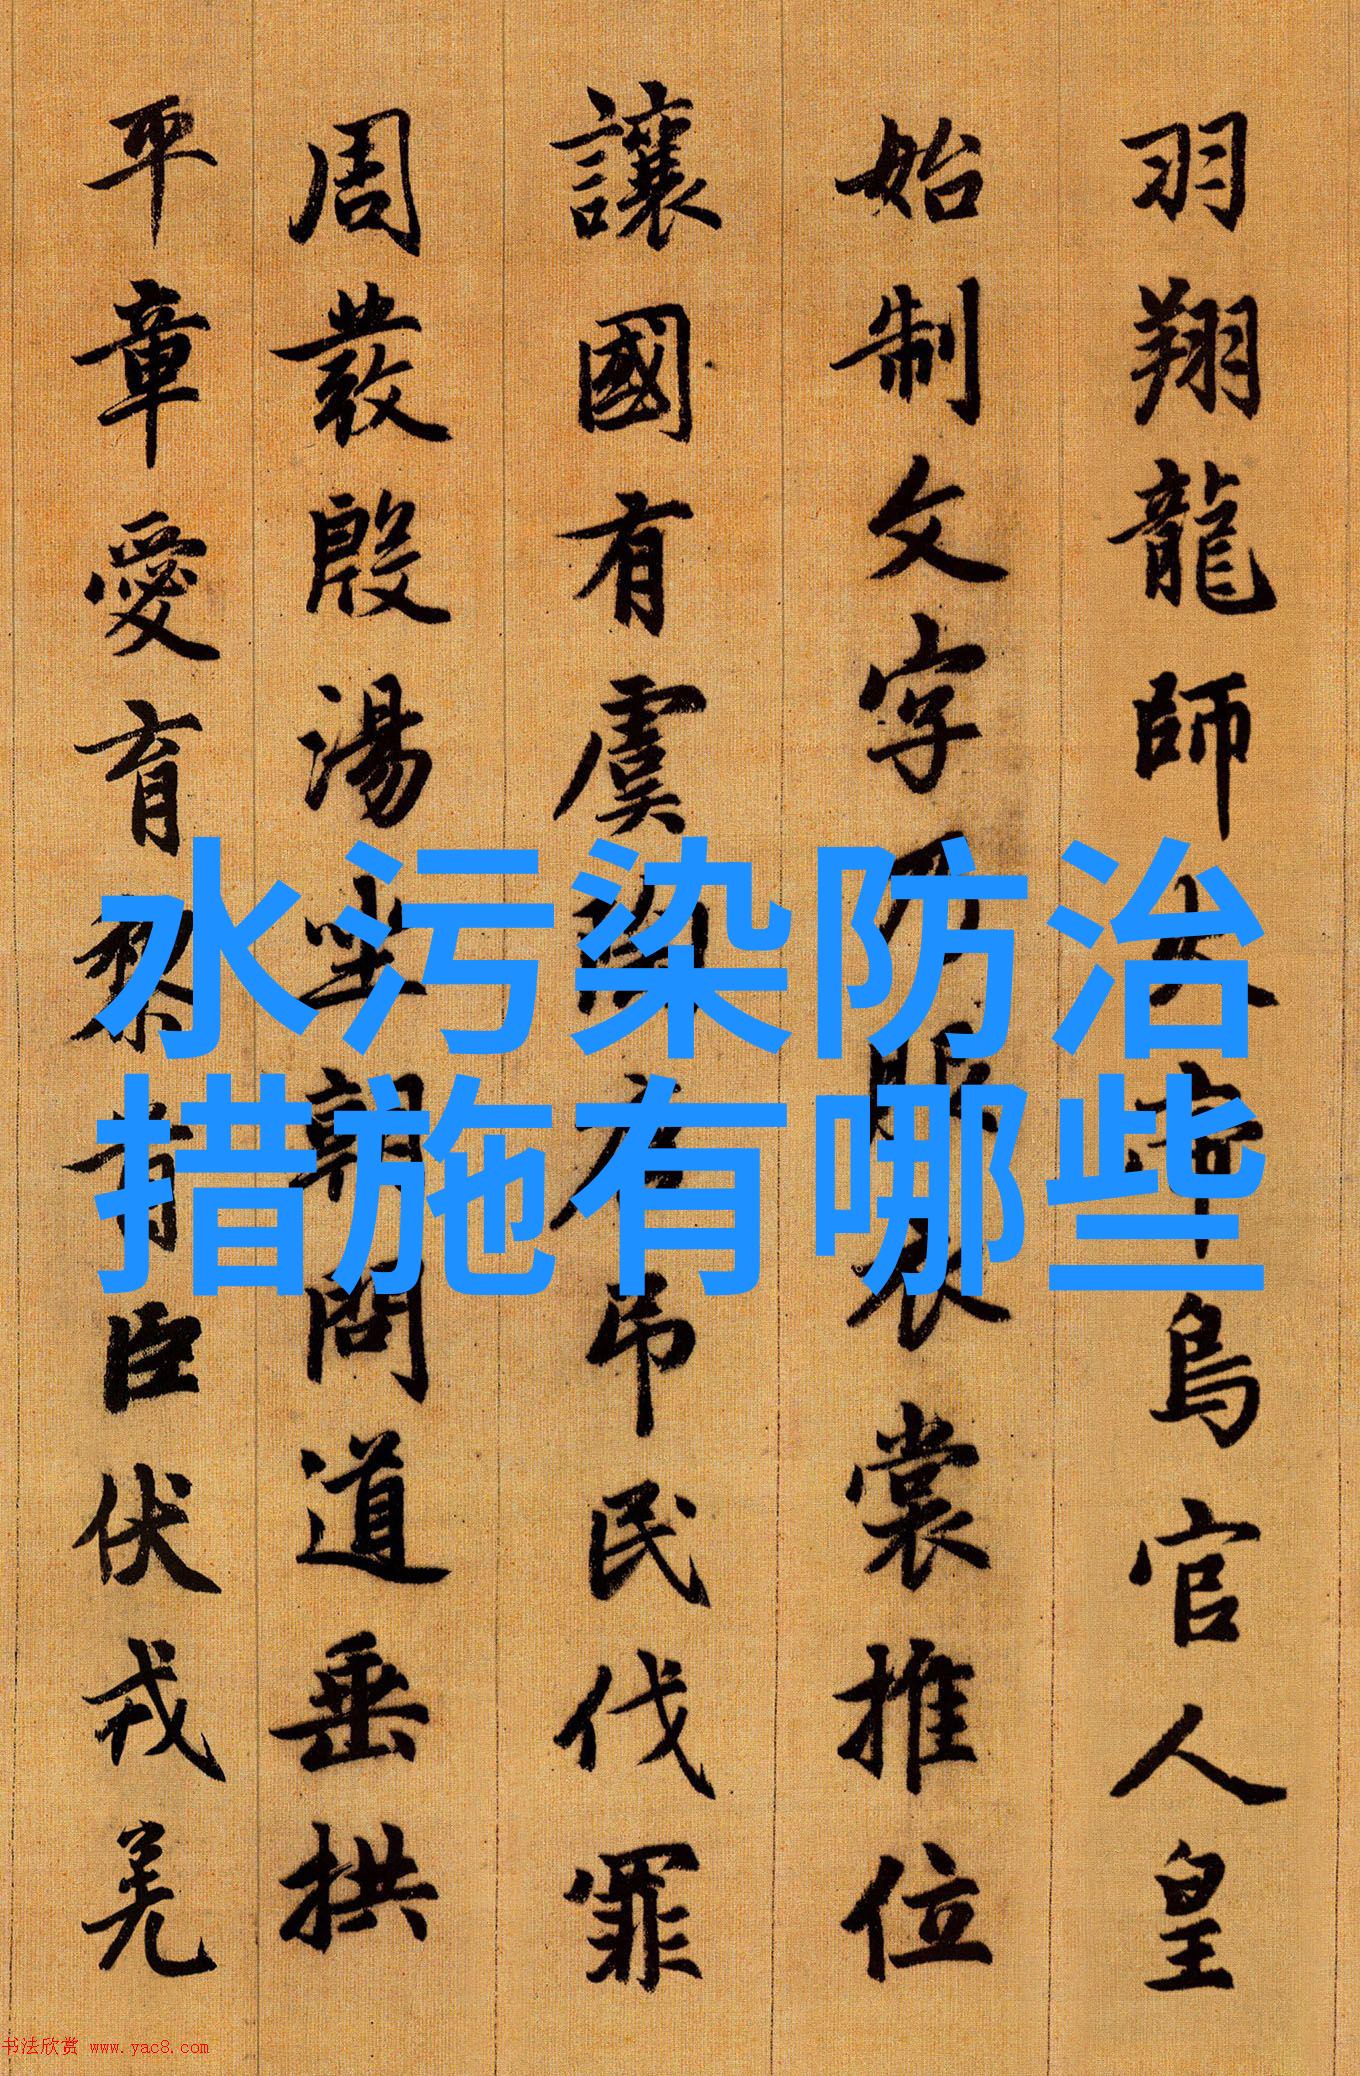 羽翔龍師火帝鳥官人皇
始制文字乃服衣裳推位
讓國有虞陶唐弔民伐罪
周發殷湯坐朝問道垂拱
平章愛育黎首臣伏戎羌
水污染防治
措施有哪些
书法欣赏 www.yac8.com